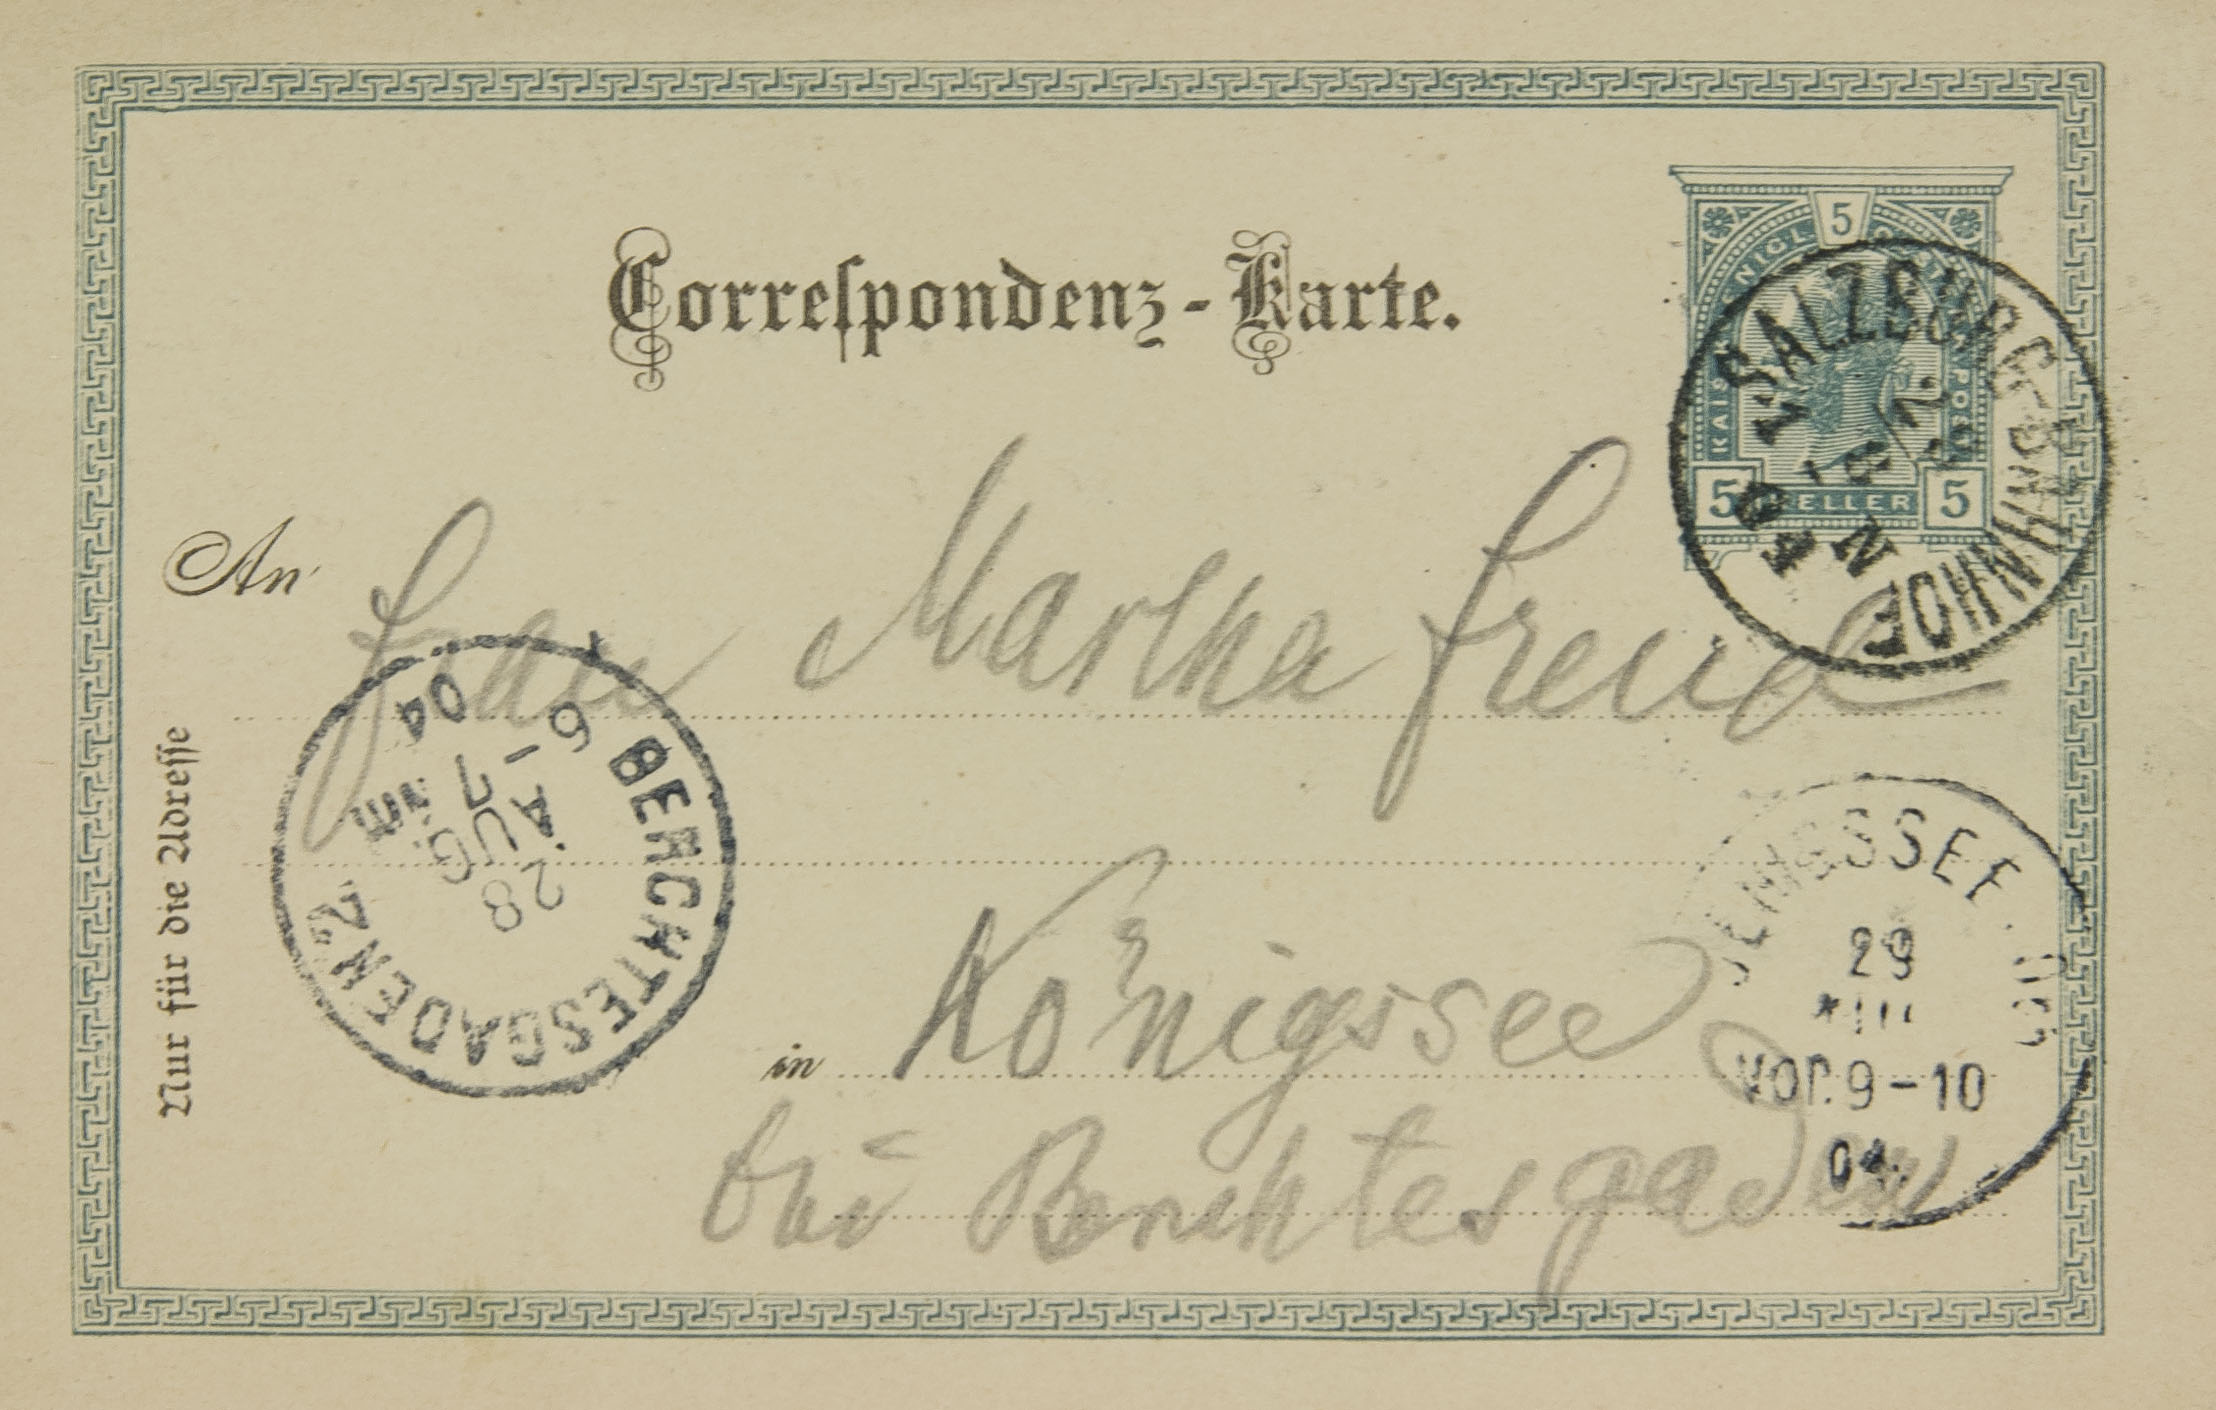 Correspondenz-Karte.
5
5 HELLER 5
SALZBURG-BAHNHOF
An Frau Martha Freud
Nur für die Adresse
BERCHTESGADEN 2
28
AUG.
6-7
04
29
VOR. 9-10
04.
in Königssee
bei Berchtesgaden